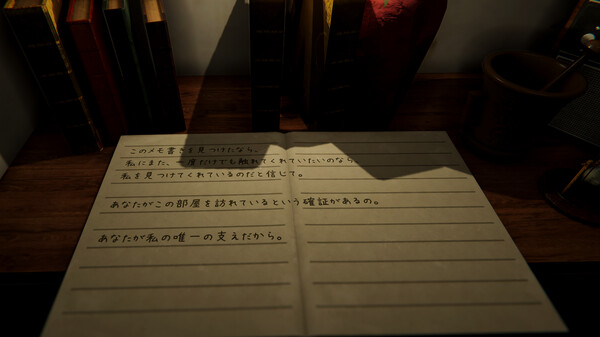 このメモ書きを見つけたなら、
私にまた、一度だけでも触れてくれていたいのなら
私を見つけてくれているのだと信じて。
あなたがこの部屋を訪れているという確証があるの。
あなたが私の唯一の支えだから。